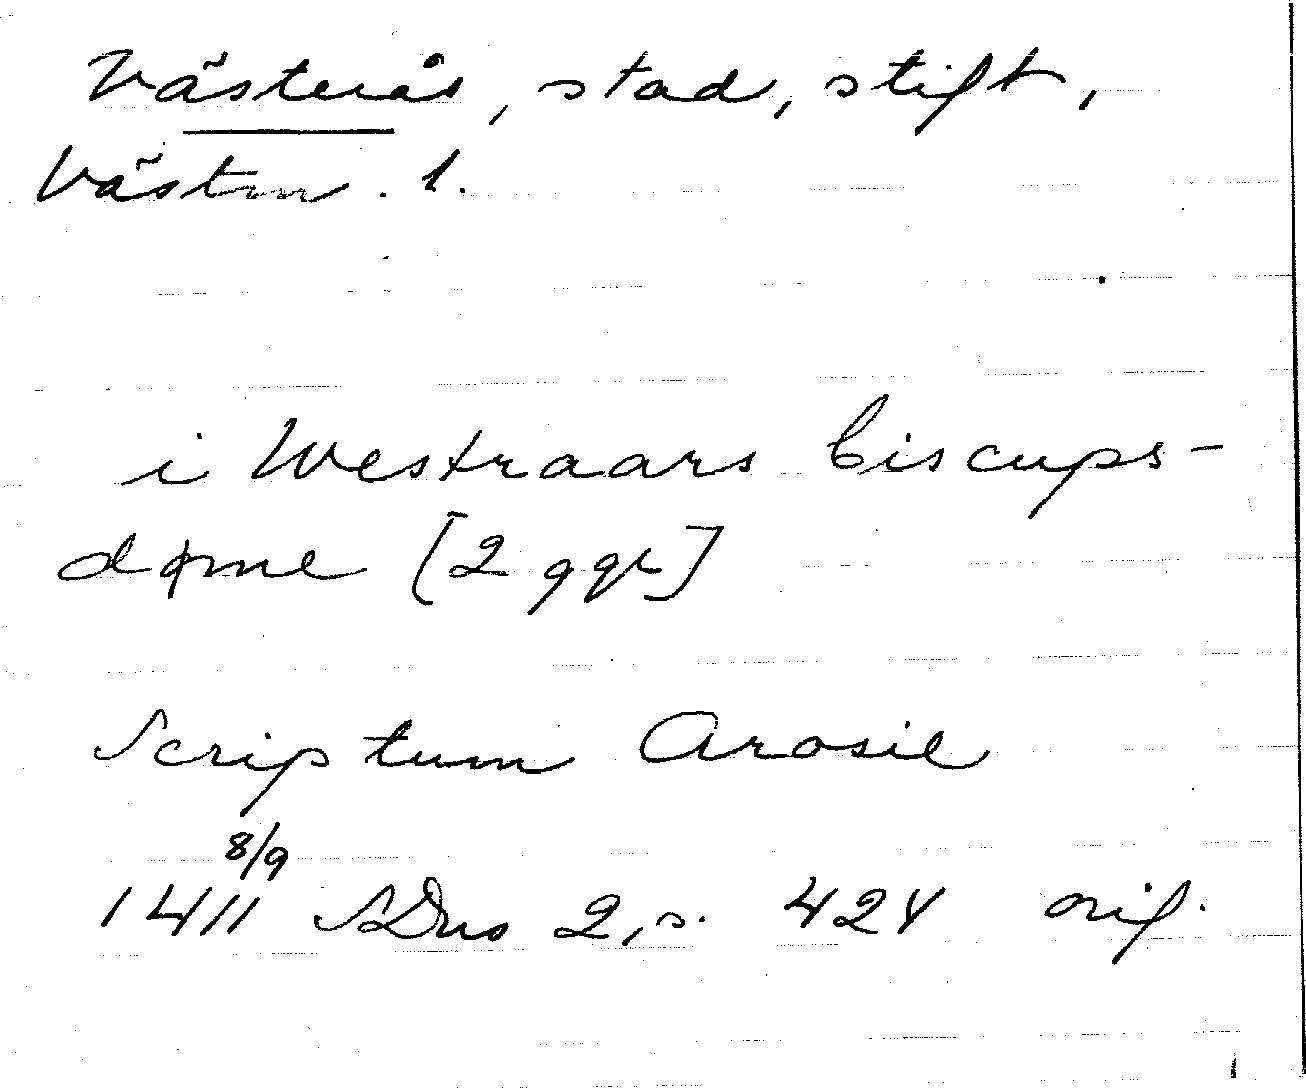 Västerås, stad, stift,
Västm. l.
i Westraars biscups-
døme [2 ggr]
Scriptum Arosie
1411 8/9 SDns 2, s. 424 orig.